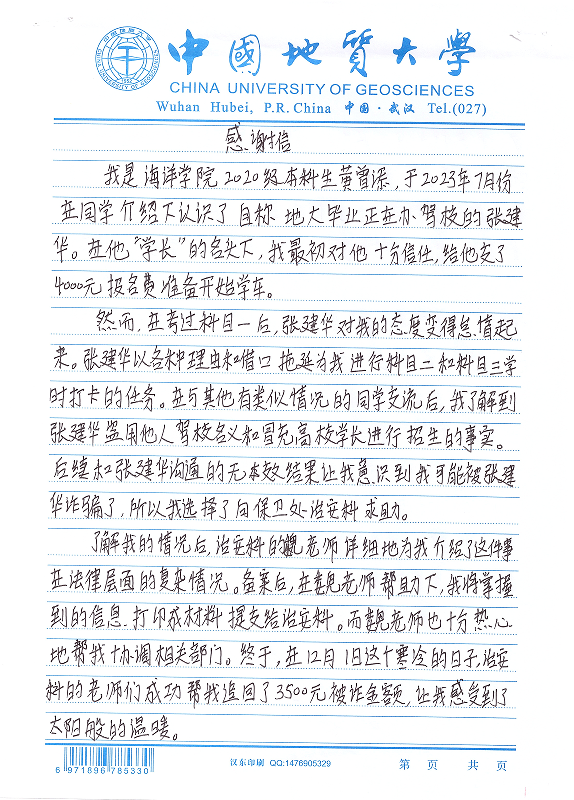 中國地質大學
CHINA UNIVERSITY OF GEOSCIENCES
Wuhan Hubei, P.R.China 中国·武汉 Tel.(027)
感谢信
我是海洋学院2020级本科生黄曾深，于2023年7月份
在同学介绍下认识了自称地大毕业正在办驾校的张建
华。在他“学长”的名头下，我最初对他十分信任，给他交了
4000元报名费准备开始学车。
然而，在考过科目一后，张建华对我的态度变得怠惰起
来。张建华以各种理由和借口拖延为我进行科目二和科目三学
时打卡的任务。在与其他有类似情况的同学交流后，我了解到
张建华盗用他人驾校名义和冒充高校学长进行招生的事实。
后续和张建华沟通的无本效结果让我意识到我可能被张建
华诈骗了，所以我选择了向保卫处治安科求助。
了解我的情况后，治安科的魏老师详细地为我介绍了这件事
在法律层面的复杂情况。备案后，在魏老师帮助下，我将掌握
到的信息打印成材料提交给治安科。而魏老师也十分热心
地帮我协调相关部门。终于，在12月1日这个寒冷的日子，治安
科的老师们成功帮我追回了3500元被诈金额，让我感受到了
太阳般的温暖。
6 971896 785330
汉东印刷 QQ:1476905329
第 页 共 页